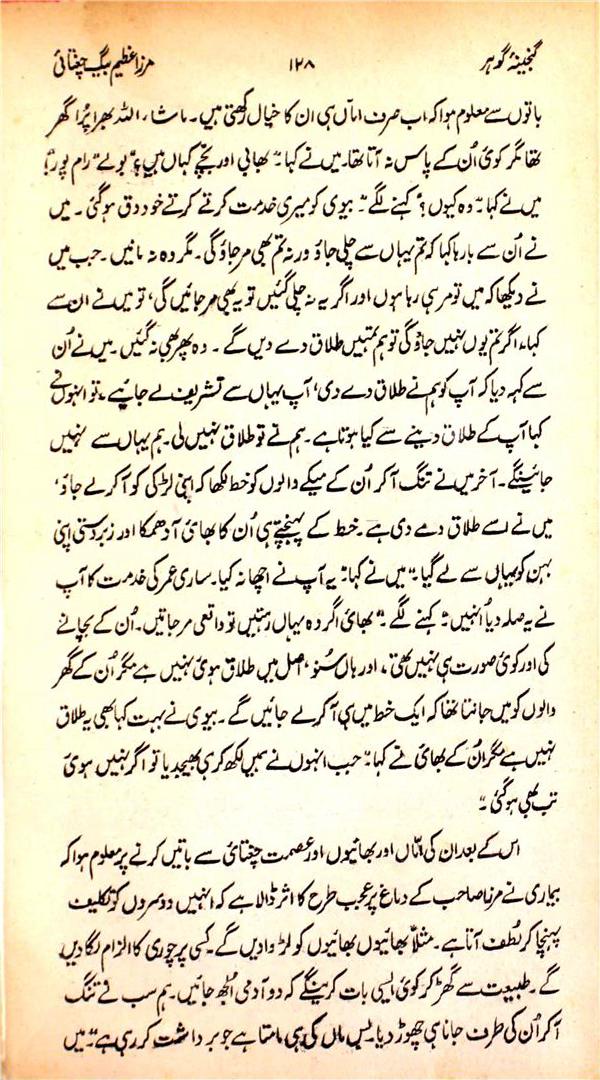 گنجینۂ گوہر ۱۲۸ مرزا عظیم بیگ چغتائی
باتوں سے معلوم ہوا کہ اب صرف اماں ہی ان کا خیال رکھتی ہیں۔ ماشاء اللہ بھرا پُرا گھر
تھا مگر کوئی اُن کے پاس نہ آتا تھا۔ میں نے کہا۔ "بھابی اور بچے کہاں ہیں؟" بولے "رام پور!"
میں نے کہا۔ "وہ کیوں؟" کہنے لگے۔ "بیوی کو میری خدمت کرتے کرتے خود دق ہو گئی۔ میں
نے اُن سے بارہا کہا کہ تم یہاں سے چلی جاؤ ورنہ تم بھی مر جاؤ گی۔ مگر وہ نہ مانیں۔ جب میں
نے دیکھا کہ میں تو مر ہی رہا ہوں اور اگر یہ نہ چلی گئیں تو یہ بھی مر جائیں گی، تو میں نے ان سے
کہا، اگر تم یوں نہیں جاؤ گی تو ہم تمہیں طلاق دے دیں گے۔ وہ پھر بھی نہ گئیں۔ میں نے اُن
سے کہہ دیا کہ آپ کو ہم نے طلاق دے دی، آپ یہاں سے تشریف لے جایئے۔ تو انہوں نے
کہا آپ کے طلاق دینے سے کیا ہوتا ہے۔ ہم نے تو طلاق نہیں لی۔ ہم یہاں سے نہیں
جائینگے۔ آخر میں نے تنگ آ کر اُن کے میکے والوں کو خط لکھا کہ اپنی لڑکی کو آ کر لے جاؤ،
میں نے اسے طلاق دے دی ہے۔ خط کے پہنچتے ہی اُن کا بھائی آ دھمکا اور زبردستی اپنی
بہن کو یہاں سے لے گیا۔" میں نے کہا۔ "یہ آپ نے اچھا نہ کیا۔ ساری عمر کی خدمت کا آپ
نے یہ صلہ دیا اُنہیں" کہنے لگے۔ "بھائی اگر وہ یہاں رہتیں تو واقعی مر جاتیں۔ اُن کے بچانے
کی اور کوئی صورت ہی نہیں تھی، اور ہاں سنو، اصل میں طلاق ہوئی نہیں ہے مگر اُن کے گھر
والوں کو میں جانتا تھا کہ ایک خط میں ہی آ کر لے جائیں گے۔ بیوی نے بہت کہا بھی یہ طلاق
نہیں ہے مگر اُن کے بھائی نے کہا۔ "جب انہوں نے ہمیں لکھ کر ہی بھیجدیا تو اگر نہیں ہوئی
تب بھی ہو گئی۔"
اس کے بعد ان کی اماں اور بھائیوں اور عصمت چغتائی سے باتیں کرنے پر معلوم ہوا کہ
بیماری نے مرزا صاحب کے دماغ پر عجب طرح کا اثر ڈالا ہے کہ انہیں دوسروں کو تکلیف
پہنچا کر لطف آتا ہے۔ مثلاً بھائیوں بھائیوں کو لڑوا دیں گے۔ کسی پر چوری کا الزام لگا دیں
گے۔ طبیعت سے گھڑ کر کوئی ایسی بات کرینگے کہ دو آدمی اُلجھ جائیں۔ ہم سب نے تنگ
آ کر اُن کی طرف جانا ہی چھوڑ دیا۔ بس ماں کی ہی مامتا ہے جو برداشت کر رہی ہے۔" میں